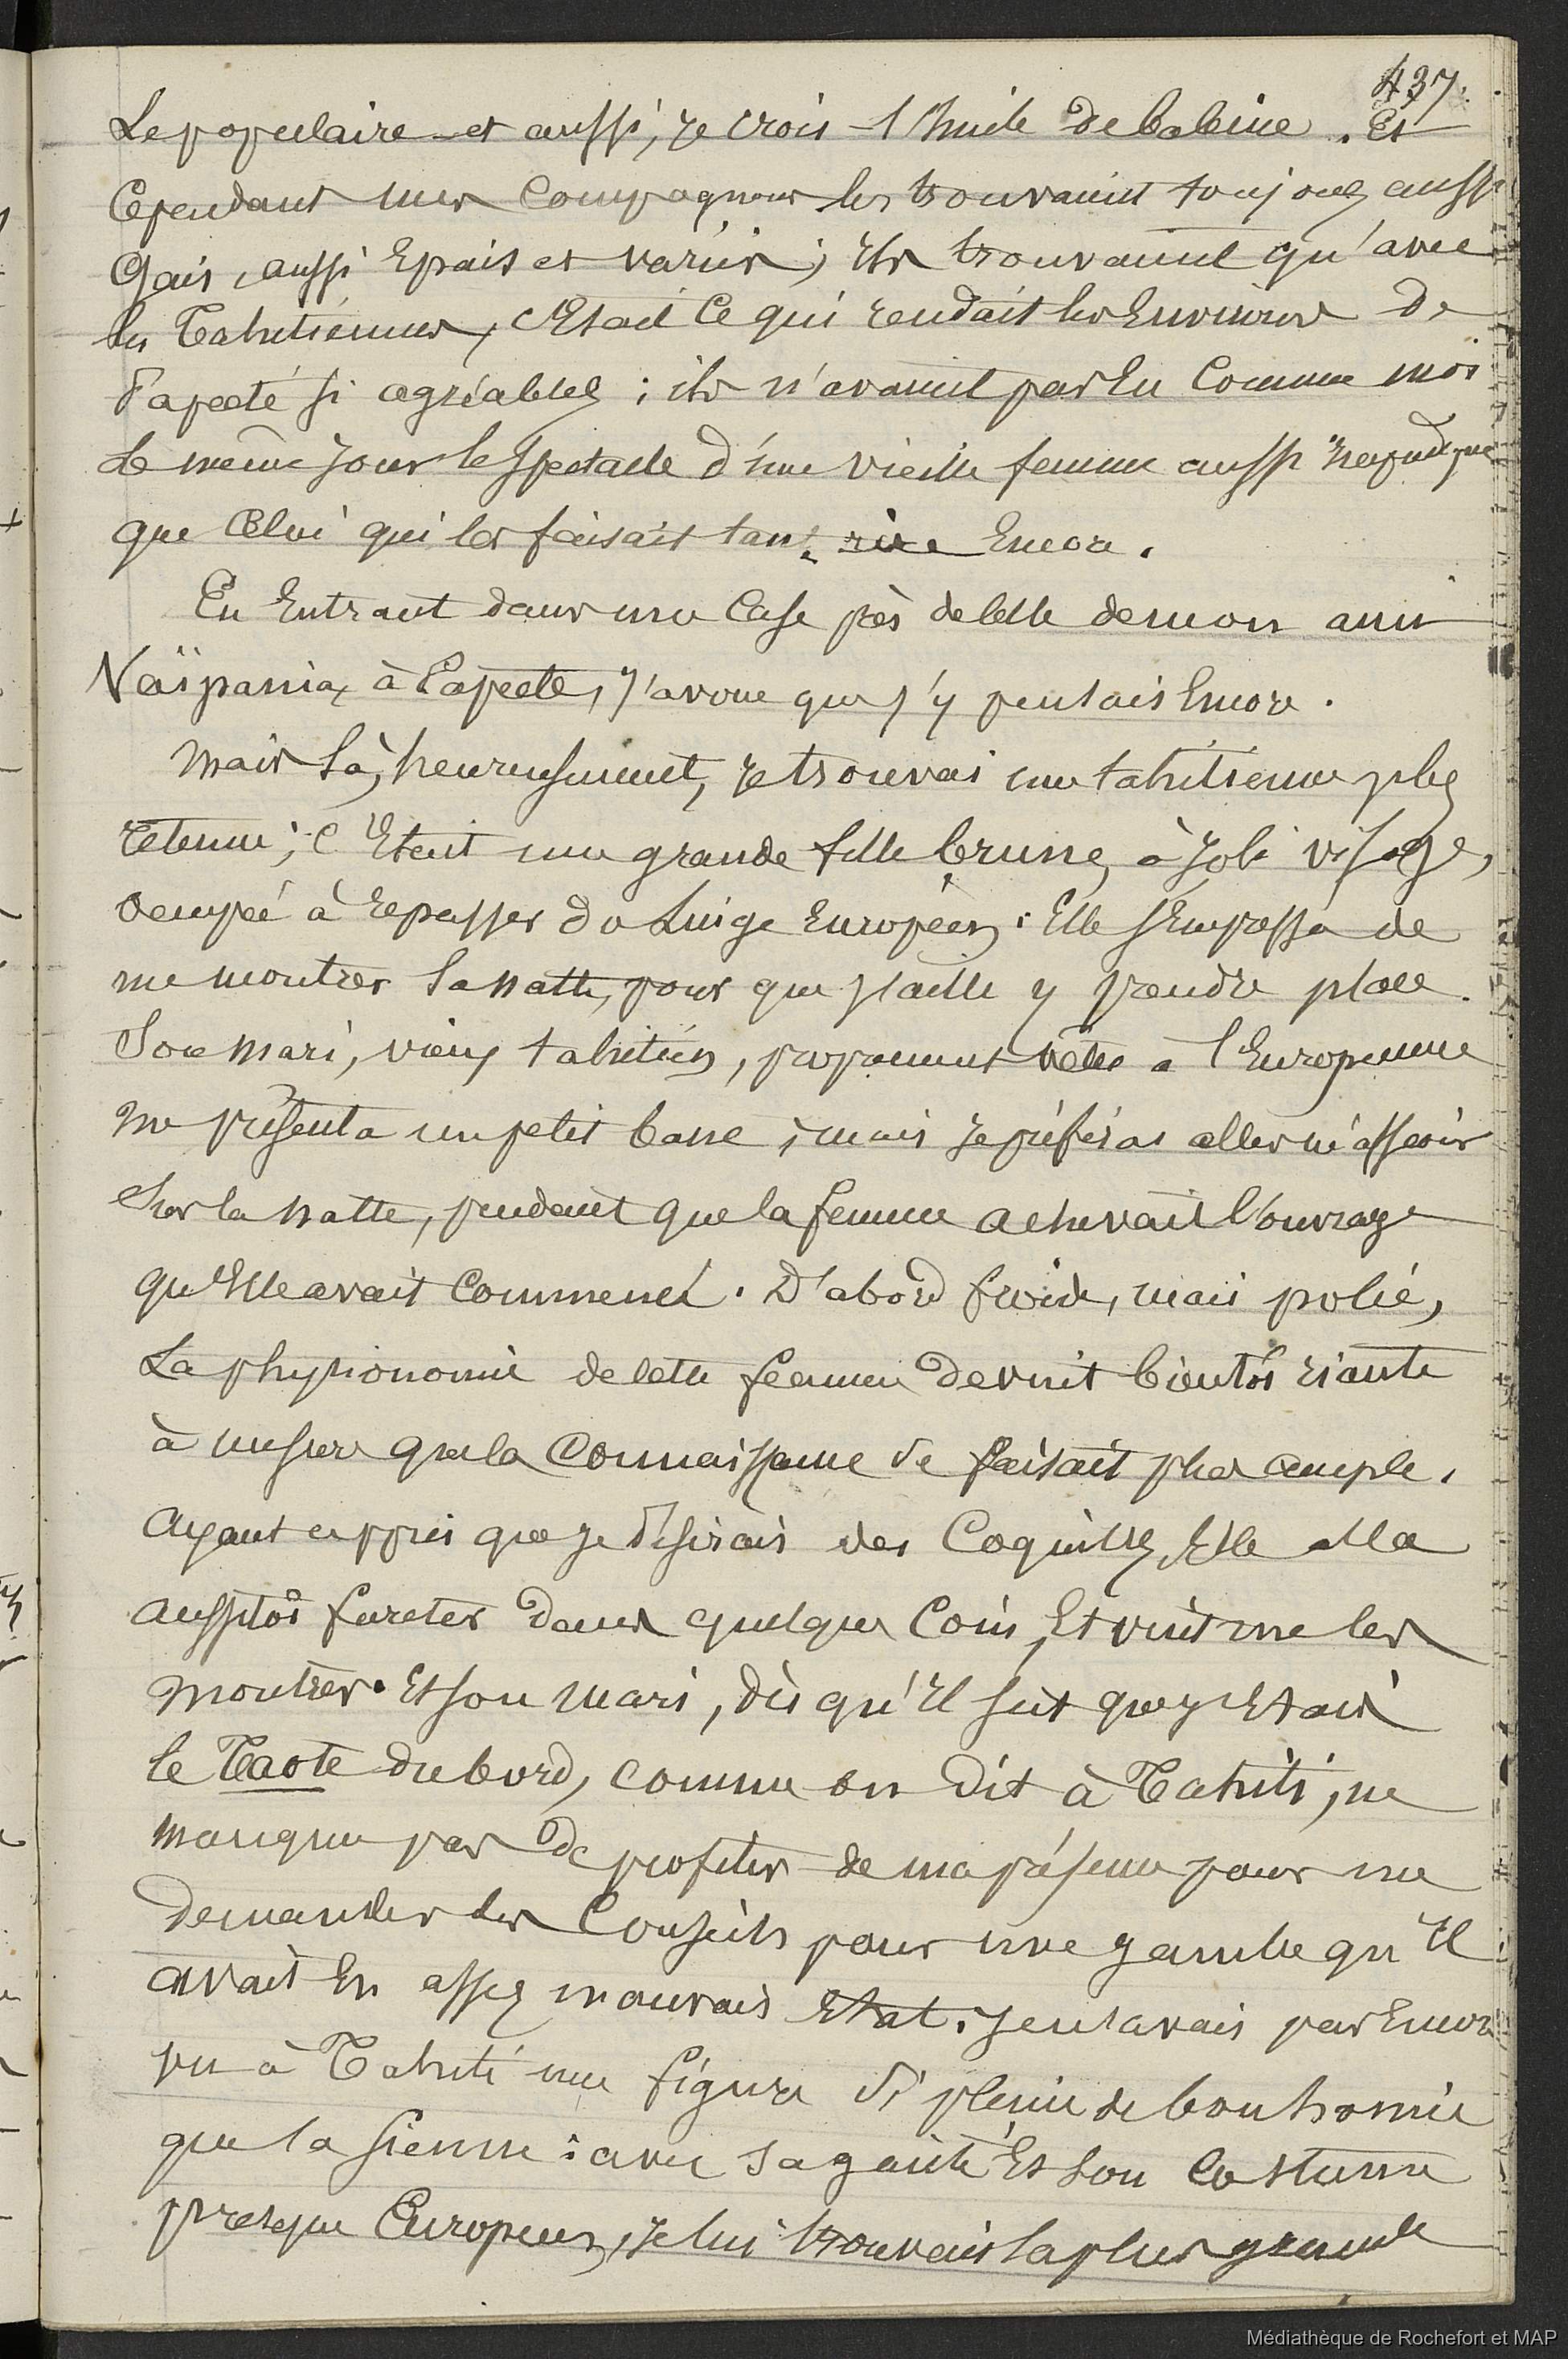 437.
Le populaire et aussi, je crois l'huile de baleine. Et
Cependant mes Compagnons les trouvaient toujours aussi
Gais, aussi Epais et variés ; ils trouvaient qu'avec
les Tahitiennes, c'Etait ce qui rendait les Environs de
Papeete si agréables ; ils n'avaient pas Eu Comme moi
Le même jour le spectacle d'une vieille femme aussi impudique
que Celui qui les faisait tant rire Encore.
En Entrant dans une Case près de celle de mon ami
Vaïpania, à Papeete, j'avoue que j'y pensais Encore.
Mais là, heureusement, je trouvai une tahitienne plus
retenue ; c'Etait une grande fille brune, à joli visage,
occupée à repasser du Linge Européen : Elle s'Empressa de
me montrer sa natte, pour que j'aille y prendre place.
Son mari, vieux tahitien, proprement vêtu à l'Européenne
me présenta un petit banc ; mais je préférai aller m'asseoir
Sur la natte, pendant que la femme achevait l'ouvrage
qu'Elle avait Commencé. D'abord froide, mais polie,
La physionomie de cette femme devint bientôt riante
à mesure que la Connaissance se faisait plus ample.
Ayant appris que je désirais des Coquilles, Elle alla
aussitôt fureter dans quelque Coin, Et vint me les
montrer. Et son mari, dès qu'Il sut que j'Etais
le Taote du bord, comme on dit à Tahiti, ne
manqua pas de profiter de ma présence pour me
demander des Conseils pour une jambe qu'Il
avait En assez mauvais Etat. Je n'avais pas Encore
vu à Tahiti une figure si pleine de bonhomie
que la sienne : avec sa gaîté Et son Costume
presque Européen, je lui trouvais la plus grande
Médiathèque de Rochefort et MAP